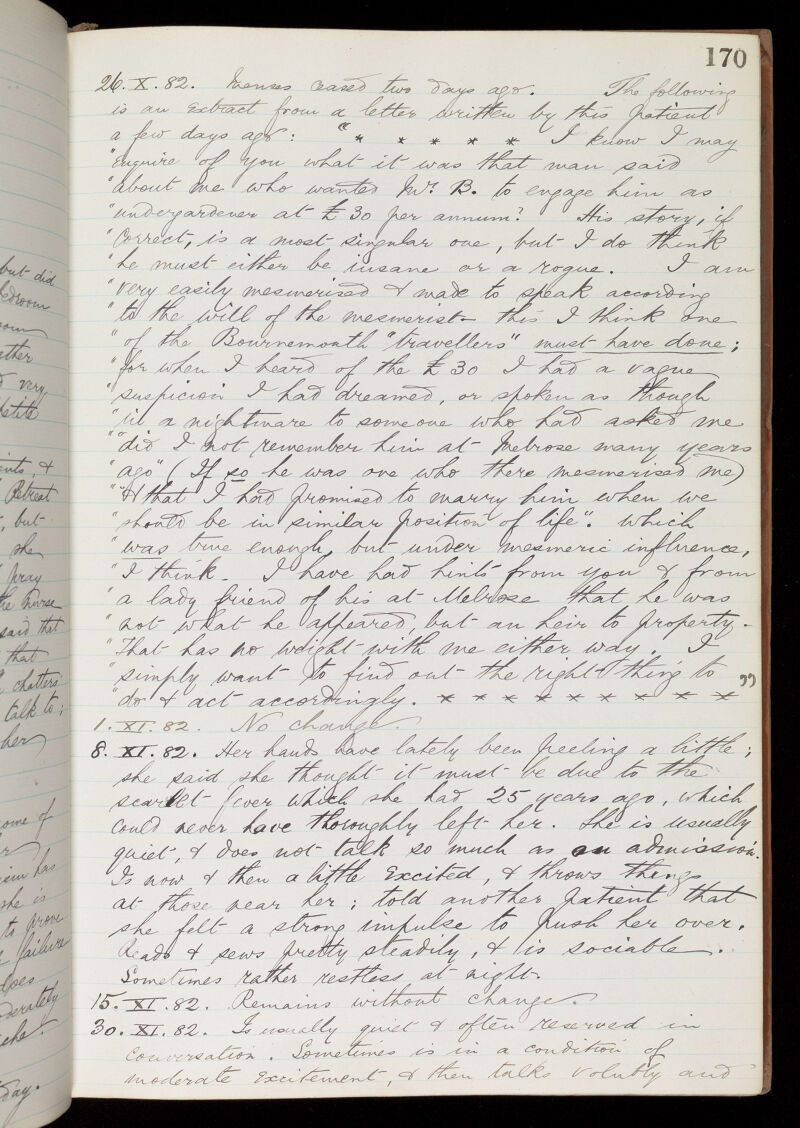 170
26. X. 82. Menses ceased two days ago. The following
is an extract from a letter written by this patient
a few days ago: " * * * * * I know I may
"enquire of you what it was that man said
"about me who wanted Mr. B. to engage him as
"undergardener at £30 per annum? His story, if
"correct, is a most singular one, but I do think
"he must either be insane or a rogue. I am
"very easily mesmerised & made to speak according
"to the will of the mesmerist – this I think one
"of the Bournemouth "travellers" must have done;
"for when I heard of the £30 I had a vague
"suspicion I had dreamed, or spoken as though
"in a nightmare to someone who had asked me
""did I not remember him at Melrose many years
"ago" (If so he was one who there mesmerised me)
""& that I had promised to marry him when we
"should be in similar position of life". Which
"was true enough, but under mesmeric influence,
"I think. I have had hints from you & from
"a lady friend of his at Melrose that he was
"not what he appeared, but an heir to property.
"That has no weight with me either way. I
"simply want to find out the right thing to
"do & act accordingly. * * * * * * * * * * "
1. XI. 82. No change.
8. XI. 82. Her hands have lately been peeling a little;
she said she thought it must be due to the
scarlet fever which she had 25 years ago, which
could never have thoroughly left her. She is usually
quiet, & does not talk so much as on admission.
Is now & then a little excited, & throws things
at those near her; told another patient that
she felt a strong impulse to push her over.
Reads & sews pretty steadily, & is sociable.
Sometimes rather restless at night.
15. XI. 82. Remains without change.
30. XI. 82. Is usually quiet & often reserved in
conversation. Sometimes is in a condition of
moderate excitement, & then talks volubly and
but did
bedroom
room
ather
d very
petite
ints &
"Retreat
, but
she
"pray
the nurse
said that
that
" chatters
talk to;
her)
some of
has
she is
to prove
failure
does
moderately
day.